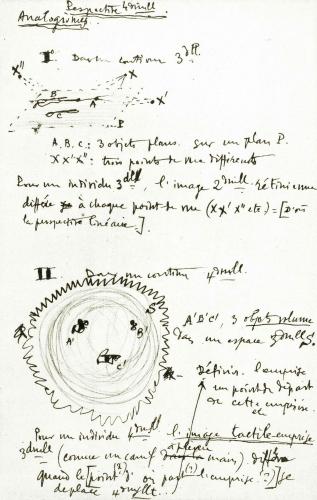 Perspective 4 dimll
Analogismes
I° Dans un continu 3 dll
X" X
B
A X'
C
P
A.B.C.: 3 objets plans. sur un plan P.
X X' X": trois points de vue différents
Pour un individu 3 dll, l'image 2 dimll rétinienne
diffère à chaque point de vue (X X' X" etc.) = [D'où
la perspective linéaire.]
II Dans un continu 4 dimll.
A' B' C'
A'B'C', 3 objets volume
dans un espace 3 dimll
Définir. l'emprise
un point de départ
de cette emprise.
Pour un individu 4 dimll l'image tactile emprise
3 dimll (comme un canif dans main)
quand le [point(?) d' on part(?) l'emprise ?] se
déplace 4 dimll...